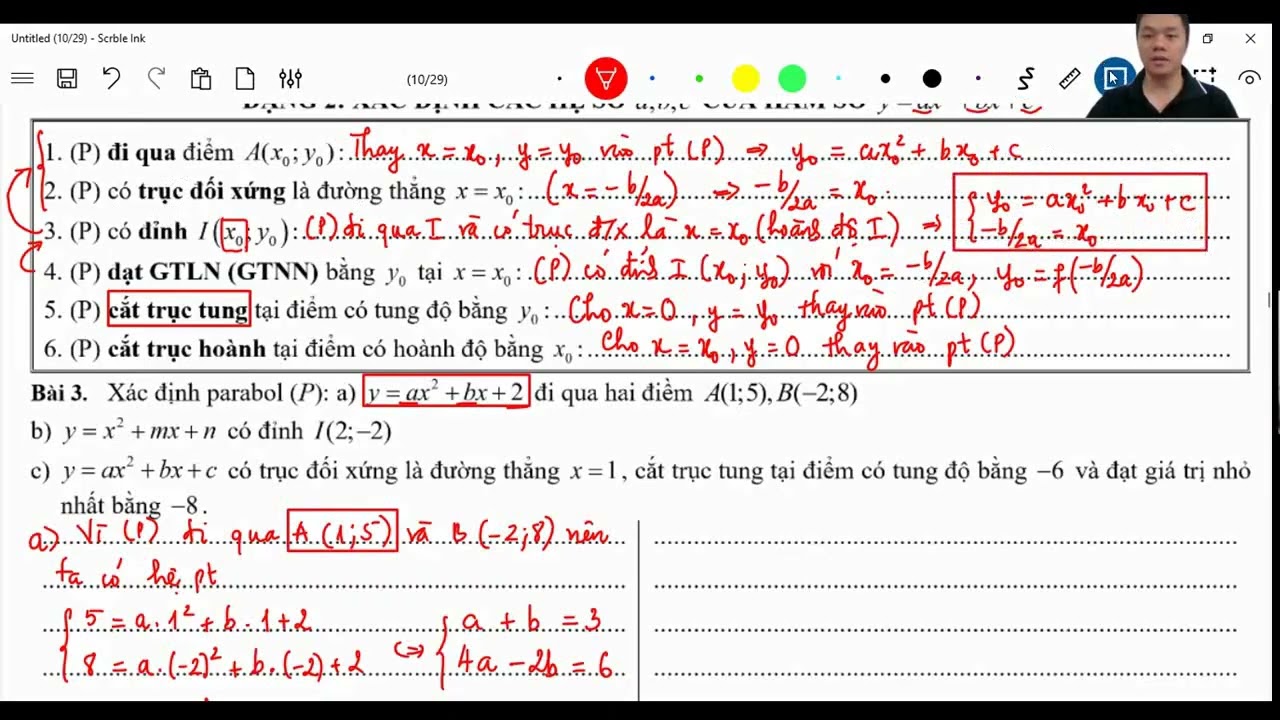 Untitled (10/29) - Scrble Ink
(10/29)
DẠNG 2: XÁC ĐỊNH CÁC HỆ SỐ a,b,c CỦA HÀM SỐ y = ax² + bx + c
1. (P) đi qua điểm A(x₀; y₀): Thay x = x₀, y = y₀ vào pt (P) ⇒ y₀ = ax₀² + bx₀ + c
2. (P) có trục đối xứng là đường thẳng x = x₀: (x = -b/2a) ⇒ -b/2a = x₀
3. (P) có đỉnh I(x₀; y₀): (P) đi qua I và có trục đ/x là x = x₀ (hoành độ I) ⇒ { y₀ = ax₀² + bx₀ + c
-b/2a = x₀
4. (P) đạt GTLN (GTNN) bằng y₀ tại x = x₀: (P) có đỉnh I (x₀; y₀) với x₀ = -b/2a, y₀ = f(-b/2a)
5. (P) cắt trục tung tại điểm có tung độ bằng y₀: Cho x = 0, y = y₀ thay vào pt (P)
6. (P) cắt trục hoành tại điểm có hoành độ bằng x₀: Cho x = x₀, y = 0 thay vào pt (P)
Bài 3. Xác định parabol (P): a) y = ax² + bx + 2 đi qua hai điểm A(1;5), B(−2;8)
b) y = x² + mx + n có đỉnh I(2;−2)
c) y = ax² + bx + c có trục đối xứng là đường thẳng x = 1, cắt trục tung tại điểm có tung độ bằng −6 và đạt giá trị nhỏ
nhất bằng −8.
a) Vì (P) đi qua A (1;5) và B (-2;8) nên
ta có hệ pt
{ 5 = a.1² + b.1 + 2 ⇔ { a + b = 3
8 = a.(-2)² + b.(-2) + 2 4a - 2b = 6